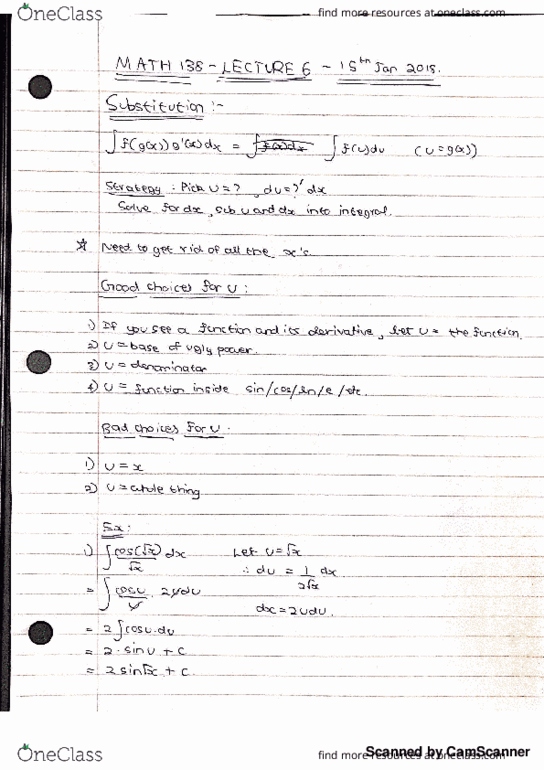 OneClass
find more resources at oneclass.com
MATH 138 - LECTURE 6 - 15th Jan 2015.
Substitution :-
∫f(g(x))g'(x)dx = ∫f(x)dx ∫f(u)du (u=g(x))
Strategy : Pick u=?, du=?' dx
Solve for dx, sub u and dx into integral.
☆ Need to get rid of all the x's.
Good choices for u :
1) If you see a function and its derivative, let u = the function.
2) u = base of ugly power.
3) u = denominator
4) u = function inside sin/cos/ln/e/etc.
Bad choices for u.
1) u = x
2) u = whole thing
Ex:
1) ∫cos(√x)/√x dx Let u=√x
∴ du = 1/2√x dx
= ∫cosu/u · 2udu
dx = 2udu.
= 2∫cosu.du
= 2·sinu + C
= 2sin√x + C
OneClass
find more resources at oneclass.com
Scanned by CamScanner